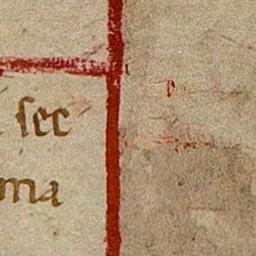 sec
ma